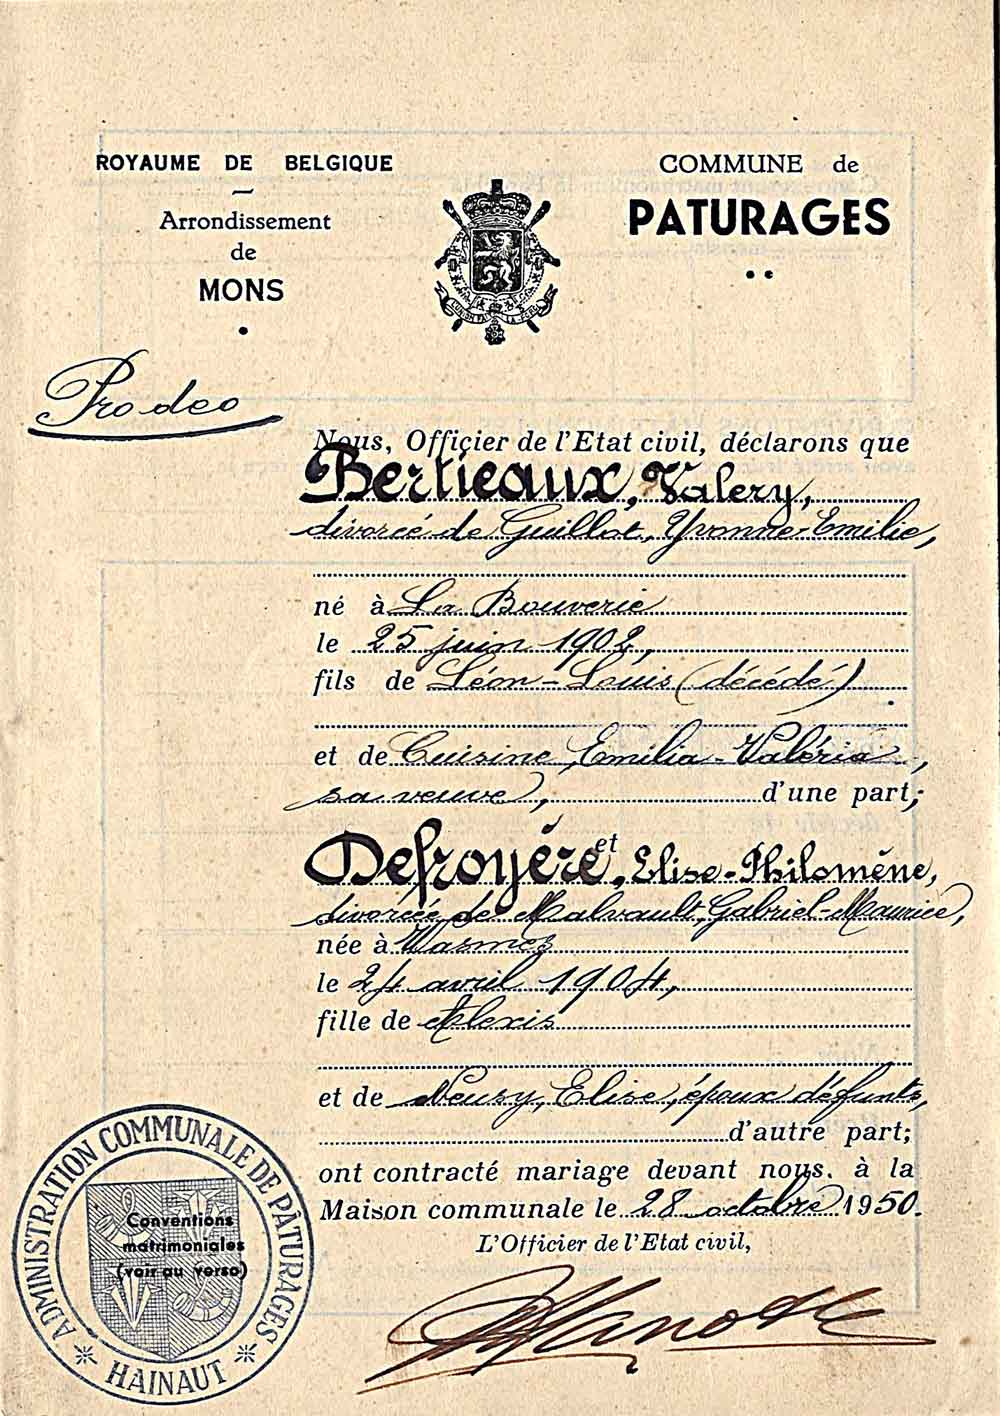 ROYAUME DE BELGIQUE
Arrondissement
de
MONS
COMMUNE de
PATURAGES
L'UNION FAIT LA FORCE
Pro deo
Nous, Officier de l'Etat civil, déclarons que
Bertieaux, Valery,
divorcé de Guillot, Yvonne-Emilie,
né à La Bouverie
le 25 juin 1902,
fils de Léon-Louis (décédé)
et de Cuisine, Emilia-Valéria,
sa veuve, d'une part,
et
Defroyère, Elise-Philomène,
divorcée de Malvault, Gabriel-Maurice,
née à Wasmes
le 24 avril 1904,
fille de Alexis
et de Neusy, Elise, époux défunts,
d'autre part;
ont contracté mariage devant nous, à la
Maison communale le 28 octobre 1950.
L'Officier de l'Etat civil,
ADMINISTRATION COMMUNALE DE PÂTURAGES
HAINAUT
Conventions
matrimoniales
(voir au verso)